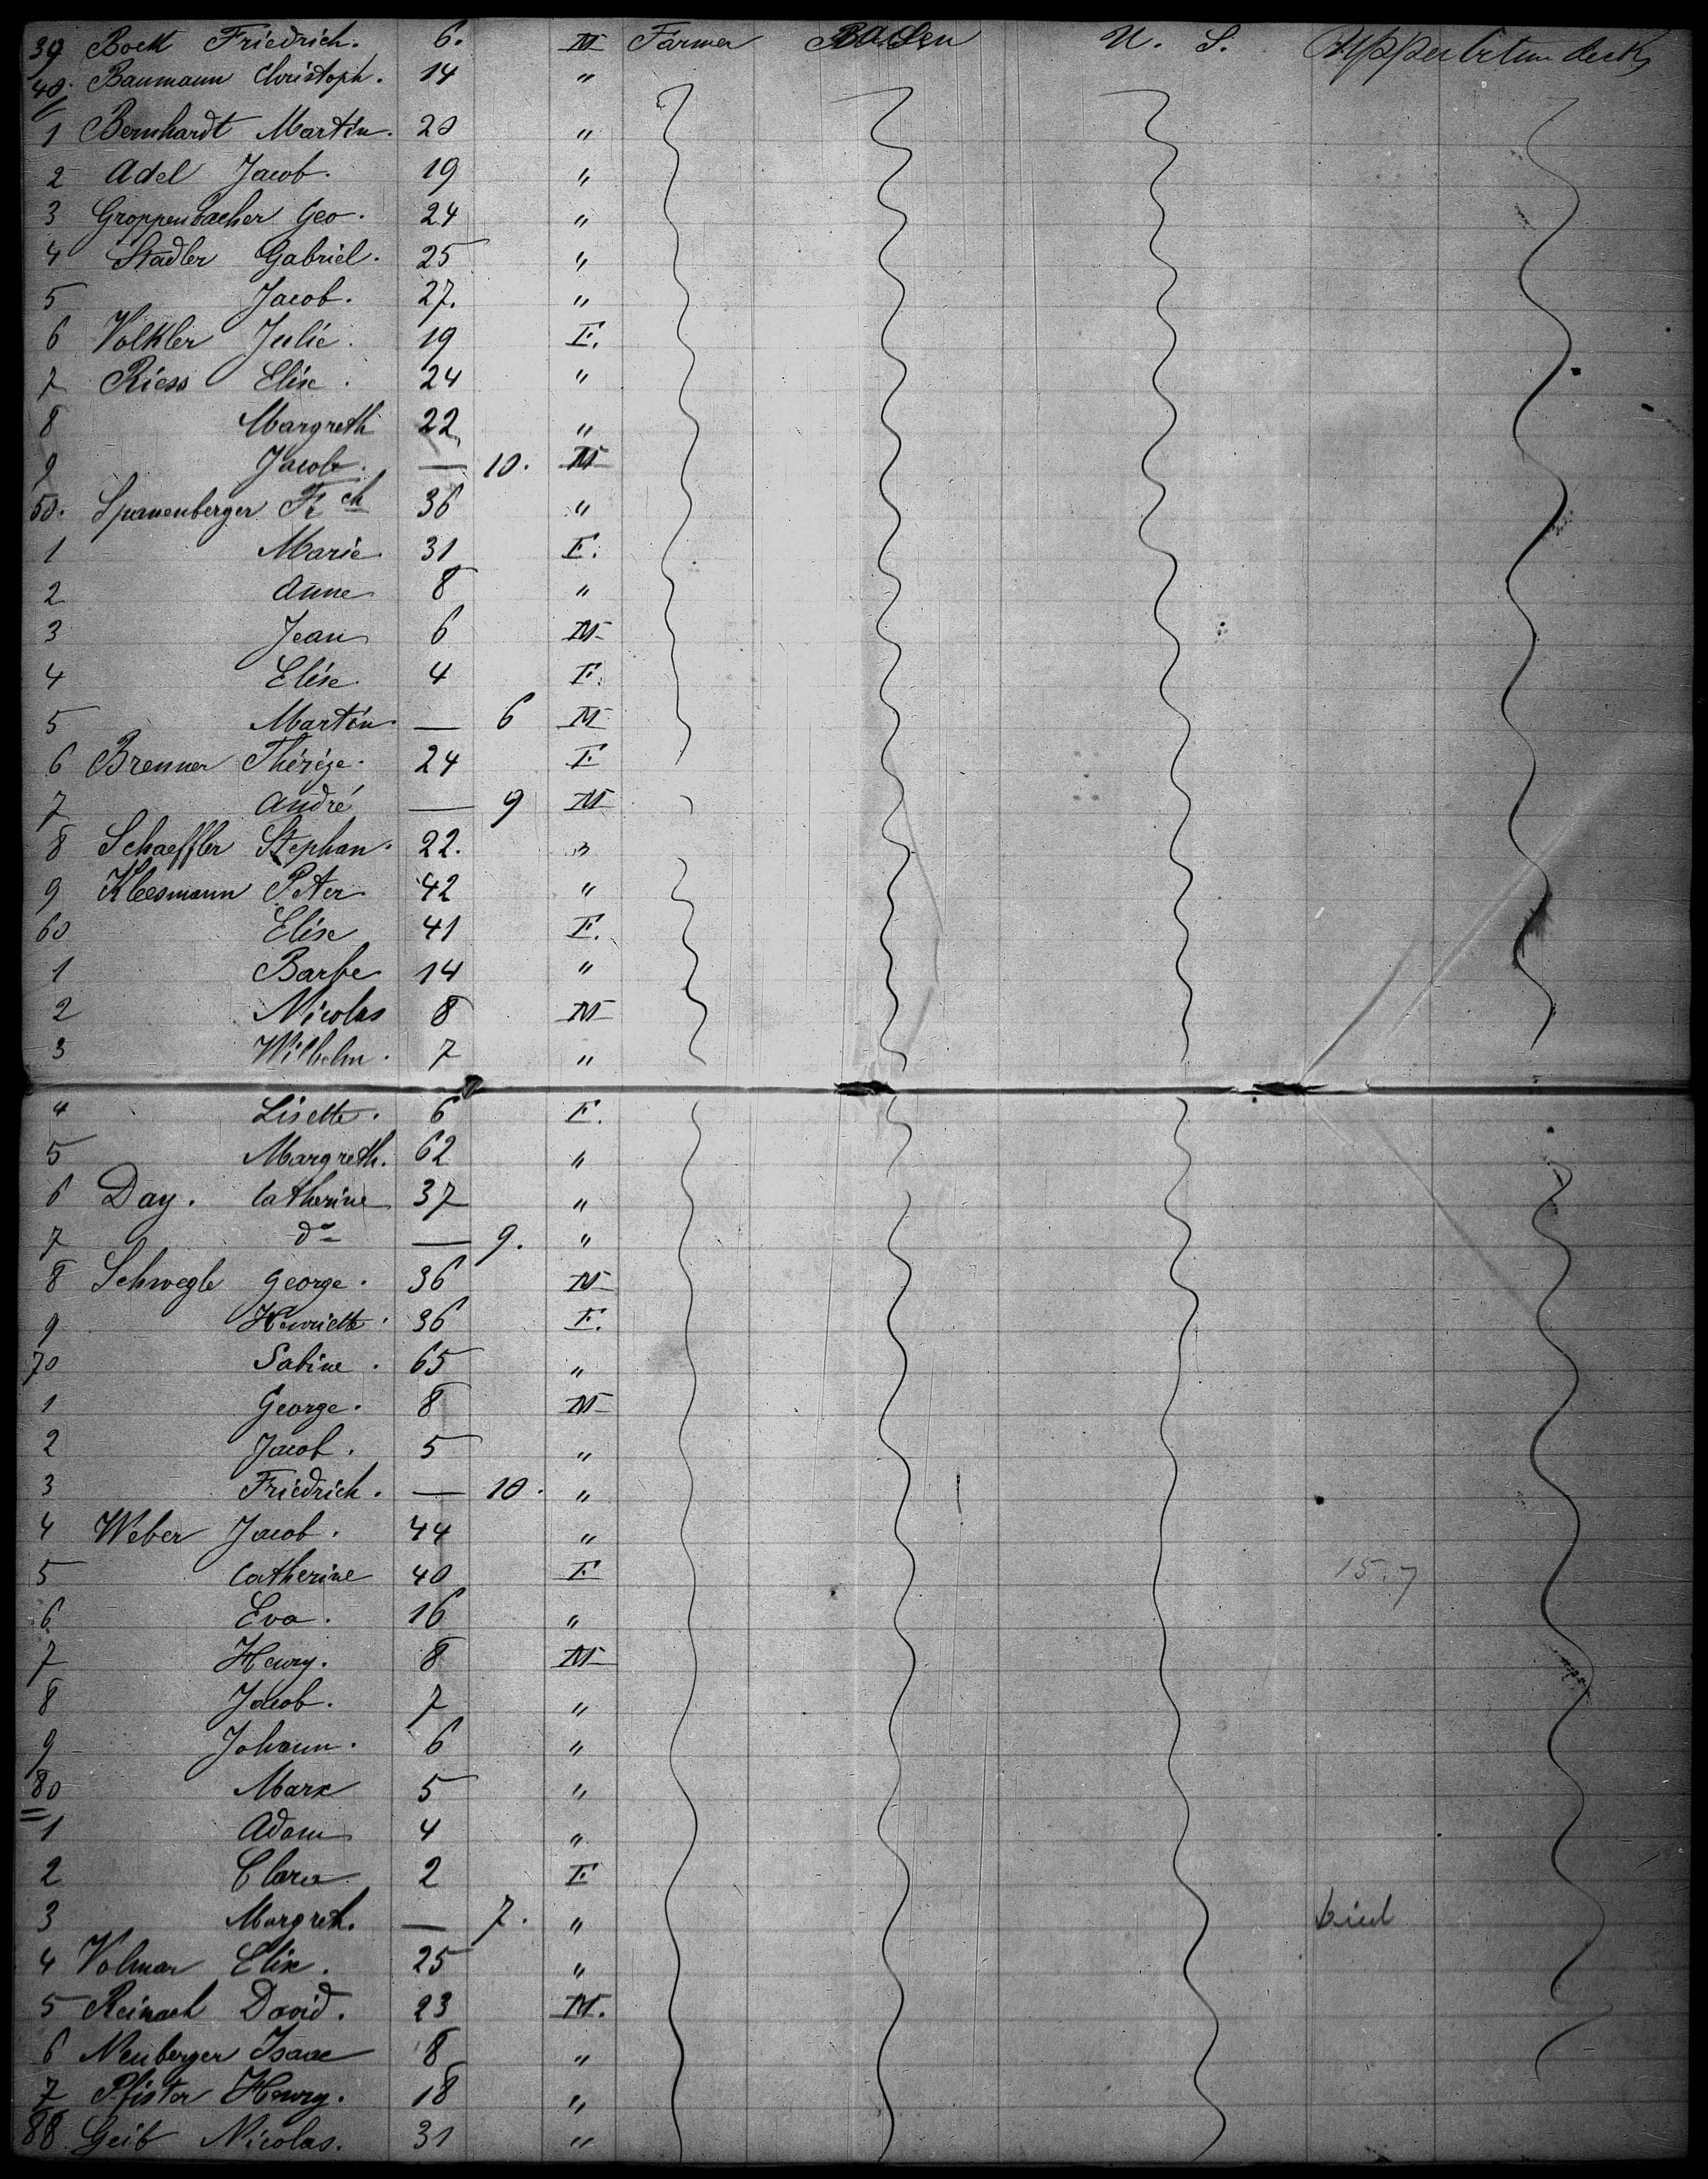 39 Bock Friedrich. 6. M Farmer Baden U. S. Upper betw. deck
40. Baumann Christoph. 14 "
1 Bernhardt Martin. 20 "
2 Adel Jacob. 19 "
3 Groppenbacher Geo. 24 "
4 Stadler Gabriel. 25 "
5 Jacob. 27. "
6 Volkler Julie. 19 F.
7 Riess Elise. 24 "
8 Margreth 22 "
9 Jacob. — 10. M
50. Spanenberger Frch 36 "
1 Marie 31 F.
2 Anne 8 "
3 Jean 6 M
4 Elise 4 F.
5 Martin. — 6 M
6 Brenner Thérèze. 24 F
7 André — 9 M
8 Schaeffler Stephan. 22. "
9 Kleesmann Peter. 42 "
60 Elise 41 F.
1 Barbe 14 "
2 Nicolas 8 M
3 Wilhelm. 7 "
4 Lisette. 6 F.
5 Margreth. 62 "
6 Day. Catherine 37 "
7 do — 9. "
8 Schwegle George. 36 M
9 Henriette. 36 F.
70 Sabine. 65 "
1 George. 8 M
2 Jacob. 5 "
3 Friedrich. — 10. "
4 Weber Jacob. 44 "
5 Catherine 40 F 15.7
6 Eva. 16 "
7 Henry. 8 M
8 Jacob. 7 "
9 Johann. 6 "
80 Marx 5 "
1 Adam 4 "
2 Clara 2 F
3 Margreth. — 7. "
4 Volmar Elise. 25 "
5 Reinach David. 23 M.
6 Neuberger Isaac 8 "
7 Pfister Henry. 18 "
88 Geib Nicolas. 31 "